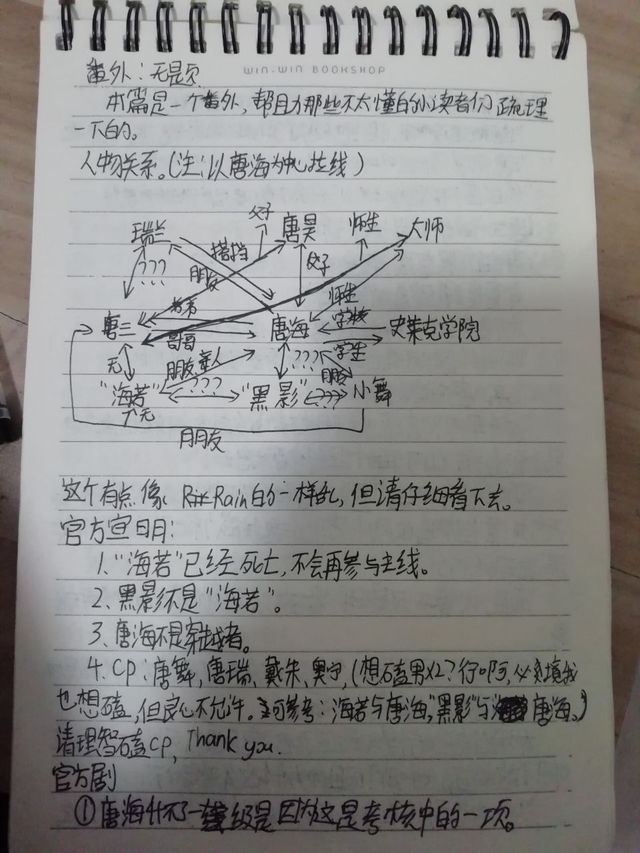 WIN-WIN BOOKSHOP
番外：无是页
本篇是一个番外，帮助那些不太懂的小读者们疏理
一下的。
人物关系。(注：以唐海为中心拉线)
父子 师生
瑞兰 唐昊 大师
搭挡
??? 朋友 父子
弟弟 师生
唐三 唐海 学校 史莱克学院
哥哥 学生
无 朋友 ??? 朋友
"海若" ??? "黑影" ??? 小舞
无
朋友
这个有点像 Rain的一样乱，但请仔细看下去。
官方宣明：
1."海若"已经死亡，不会再参与主线。
2.黑影不是"海若"。
3.唐海不是穿越者。
4.CP：唐舞，唐瑞，戴朱，奥宁，(想磕男X2？行啊，我
也想磕，但良心不允许。可参考：海若与唐海，"黑影"与唐海。)
请理智磕CP，Thank you.
官方剧
①唐海升不了级是因为这是考核中的一项。